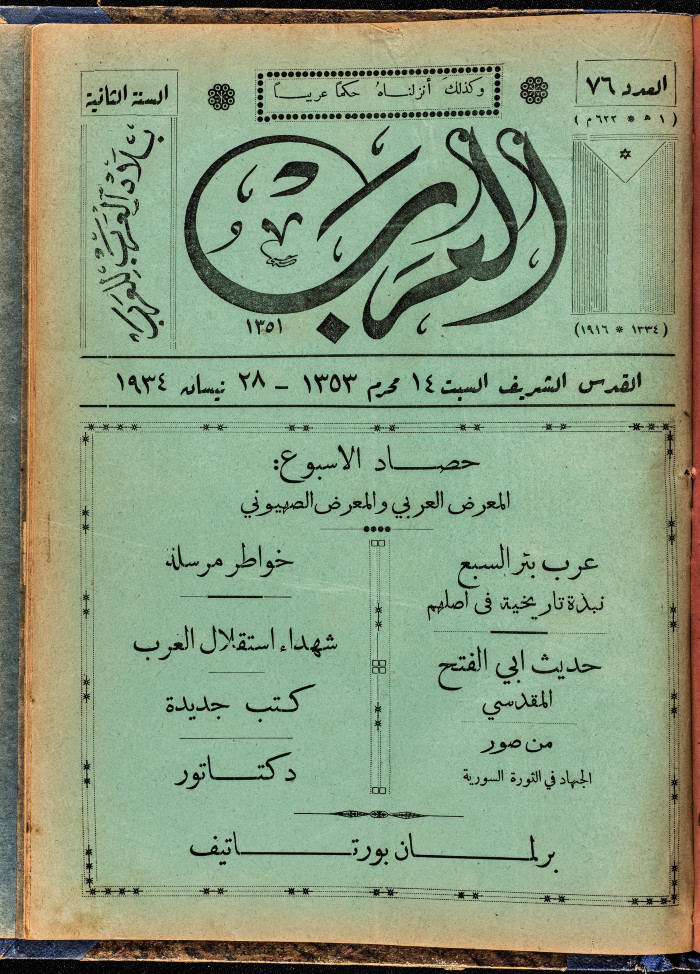 العدد ٧٦
وكذلك أنزلناه حكماً عربياً
السنة الثانية
( ١ هـ * ٦٢٢ م )
بلاد العرب للعرب
العرب
١٣٥١
( ١٣٣٤ * ١٩١٦ )
القدس الشريف السبت ١٤ محرم ١٣٥٣ – ٢٨ نيسان ١٩٣٤
حصاد الاسبوع:
المعرض العربي والمعرض الصهيوني
عرب بئر السبع
نبذة تاريخية في اصلهم
حديث ابي الفتح
المقدسي
من صور
الجهاد في الثورة السورية
خواطر مرسلة
شهداء استقلال العرب
كتب جديدة
دكتاتور
برلمان بورتاتيف